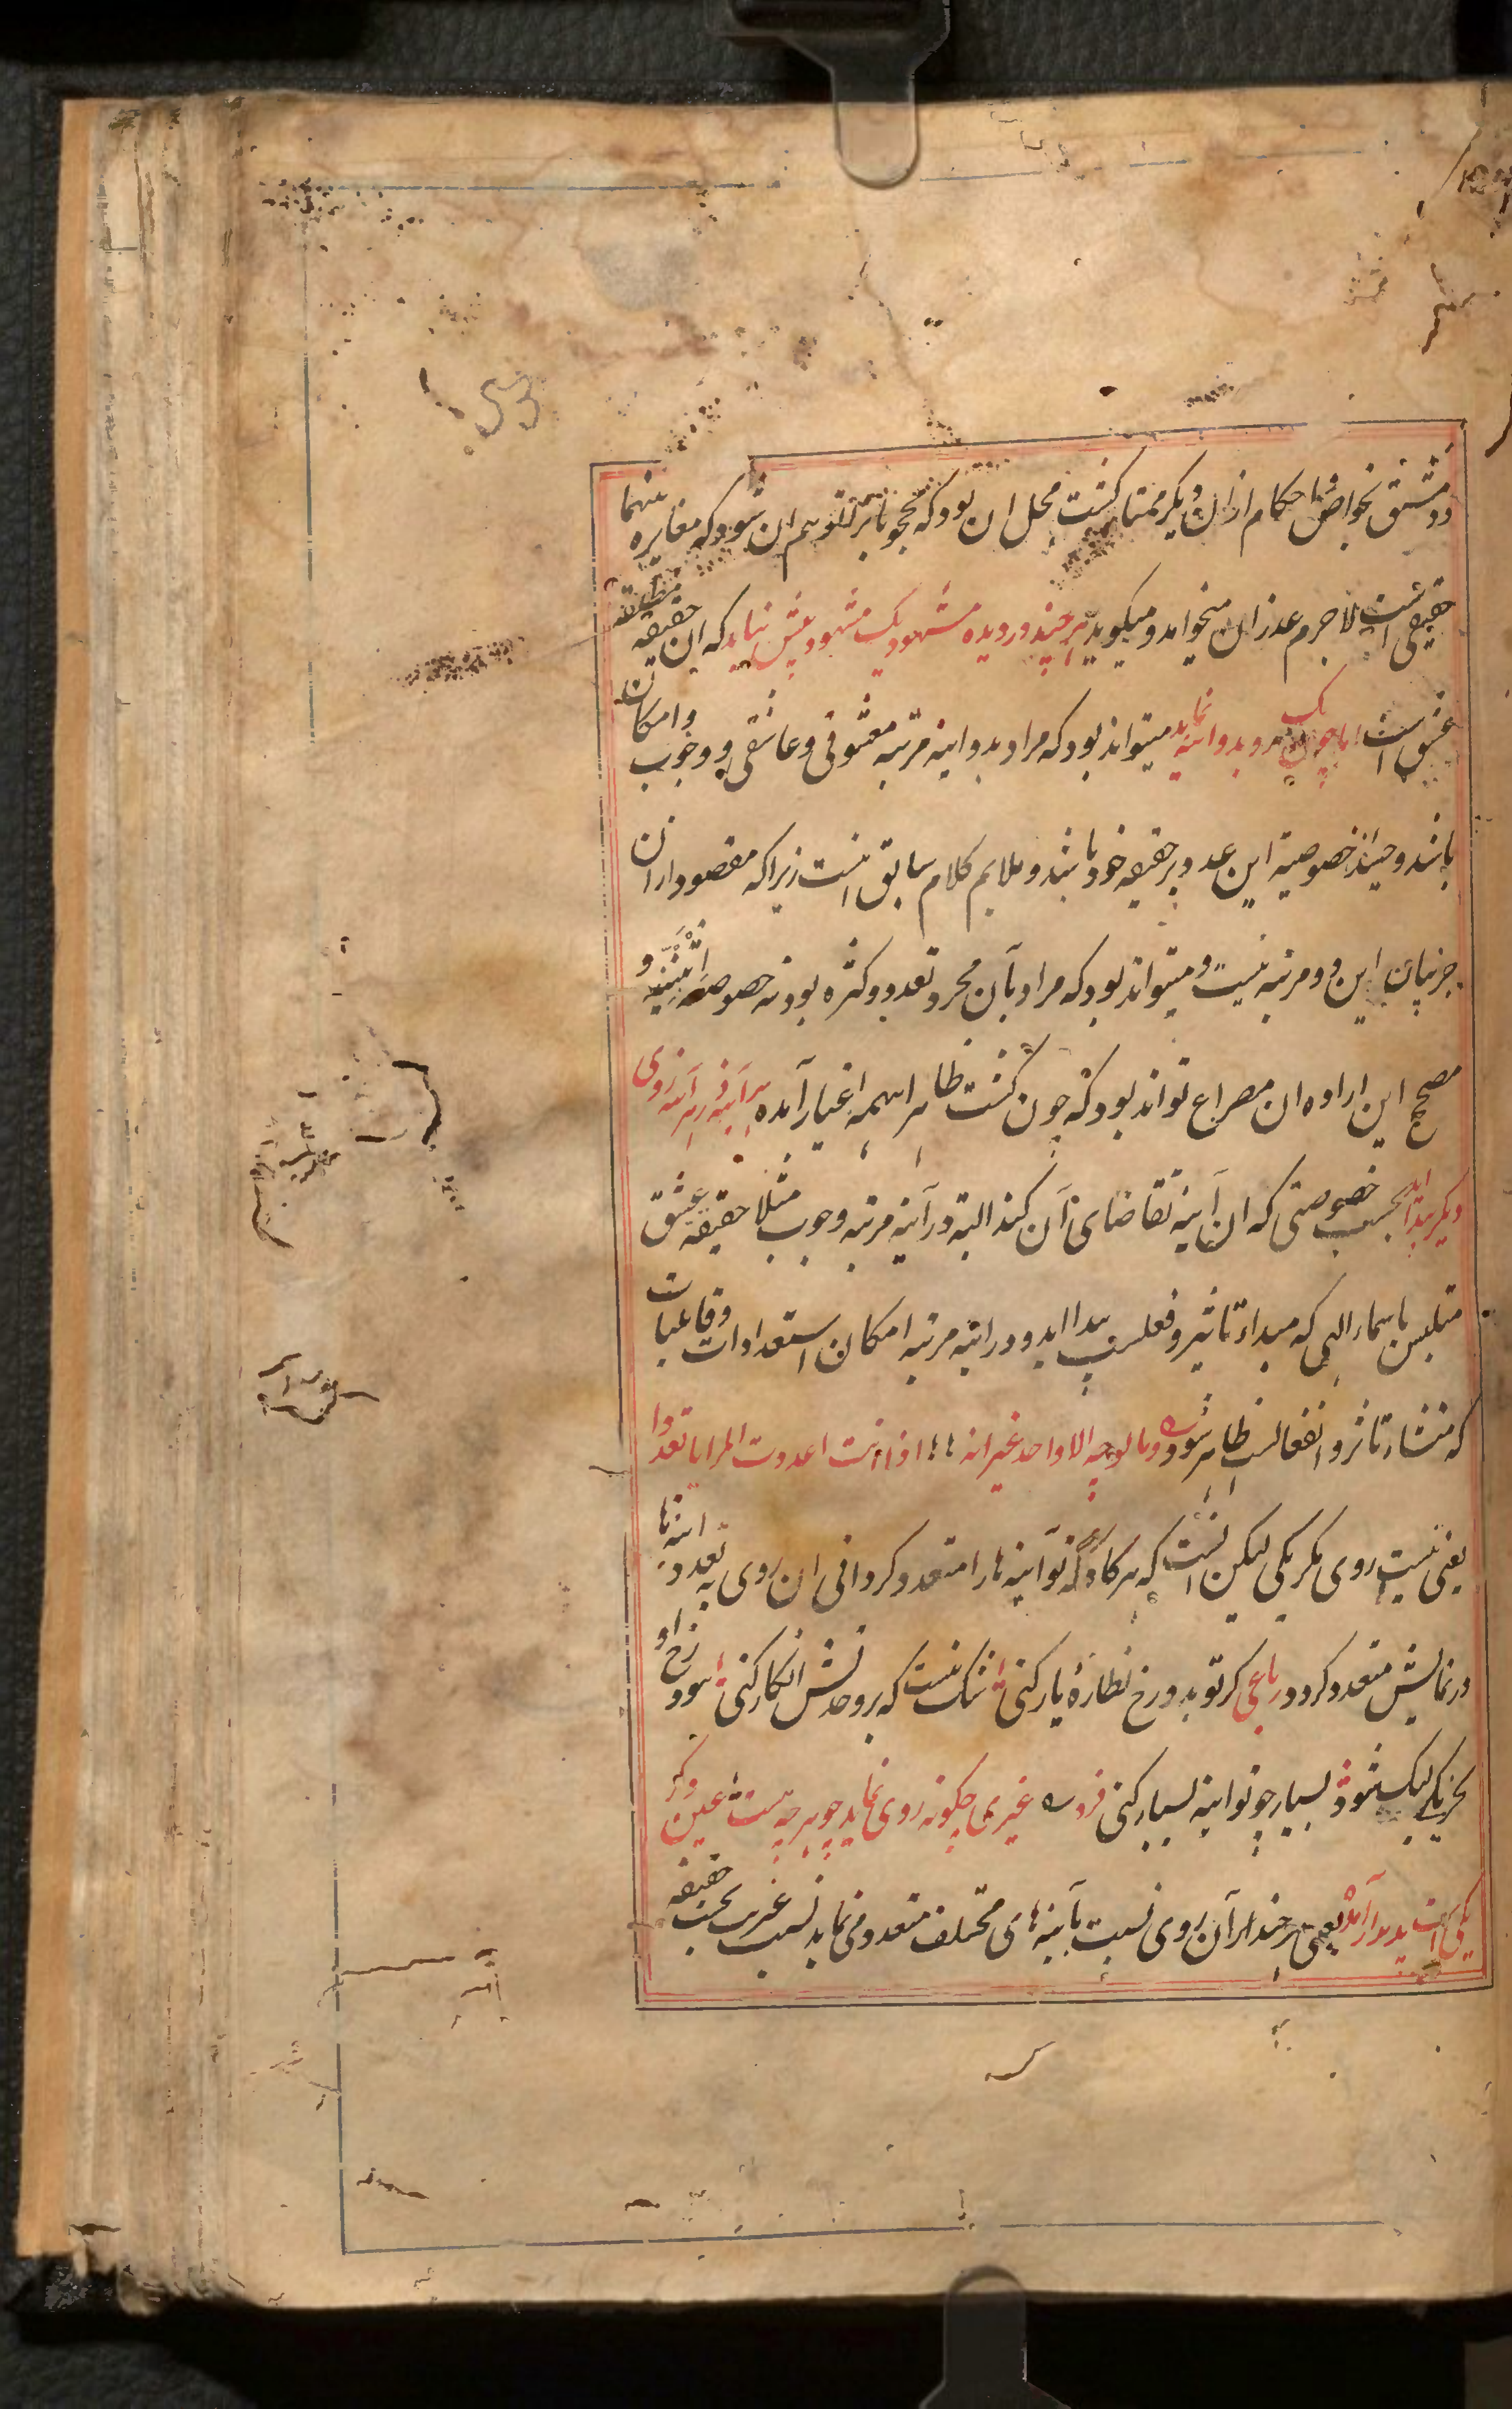 53
دو مشتق بخواص و احکام از ان دیگر ممتاز کشت محل ان بود که محجوبانرا توهم ان شود که مغایره بینهما
حقیقی است لاجرم عذر ان میخواهد و میکوید هر چند در دیده مشهود یک مشهود بیش نیاید که ان حقیقه مطلقه
عشق است اما چون یک رو بدو اینه نماید میتواند بود که مراد بدو اینه مرتبه معشوقی و عاشقی و وجوب و امکان
باشد و حینئذ خصوصیة این عدد بر حقیقه خود باشد و ملایم کلام سابق اینست زیرا که مقصود از ان
جز بیان این دو مرتبه نیست و میتواند بود که مراد بآن مجرد تعدد و کثره بود نه خصوصه اثنینیه و
مصحح این اراده ان مصراع تواند بود که چون کشت ظاهر این همه اغیار آمده هر آینه در هر آینه روی
دیکر پیدا اید بحسب خصوصیتی که ان آینه تقاضای آن کند البته در آینه مرتبه وجوب مثلا حقیقه عشق
متلبس باسماء الهی که مبداء تاثیر و فعلست پیدا اید و در اینه مرتبه امکان استعدادات و قابلیات
که منشاء تاثر و انفعالست ظاهر شود وما الوجه الا واحد غیر انه اذا انت اعددت المرایا تعددا
یعنی نیست روی مکر یکی لیکن انست که هرکاه که تو آینه ها را متعدد کردانی ان روی به تعدد اینها
در نمایش متعدد کردد رباعی کر تو بدو رخ نظارهٔ یار کنی شک نیست که بر وحدتش انکار کنی نبود رخ او
بجز یکی لیک شود بسیار چو تو اینه بسیار کنی فرد غیری چکونه روی نماید چو هر چه هست عین دکر
یکی است پدیدار آمده یعنی هر چند ان روی نسبت بآینه های مختلف متعدد می نماید نسبت غیریت بحسب حقیقه